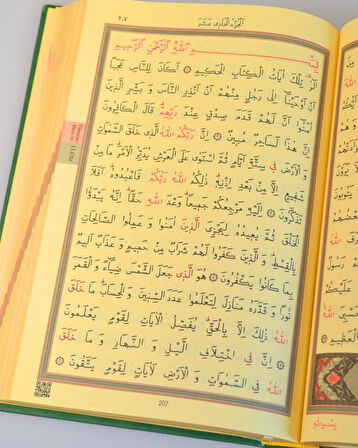 ٢٠٧ اَلْجُزْءُ الْحَادِي عَشَرَ
بِسْمِ اللّٰهِ الرَّحْمٰنِ الرَّحِيمِ
الٓرٰ تِلْكَ اٰيَاتُ الْكِتَابِ الْحَكِيمِ ۝ اَكَانَ لِلنَّاسِ عَجَبًا
اَنْ اَوْحَيْنَا اِلٰى رَجُلٍ مِنْهُمْ اَنْ اَنْذِرِ النَّاسَ وَ بَشِّرِ الَّذِينَ
اٰمَنُوا اَنَّ لَهُمْ قَدَمَ صِدْقٍ عِنْدَ رَبِّهِمْ قَالَ الْكَافِرُونَ
اِنَّ هٰذَا لَسَاحِرٌ مُبِينٌ ۝ اِنَّ رَبَّكُمُ اللّٰهُ الَّذِي خَلَقَ السَّمٰوَاتِ
وَ الْاَرْضَ فِي سِتَّةِ اَيَّامٍ ثُمَّ اسْتَوٰى عَلَى الْعَرْشِ يُدَبِّرُ الْاَمْرَ مَا مِنْ
شَفِيعٍ اِلَّا مِنْ بَعْدِ اِذْنِهِ ذٰلِكُمُ اللّٰهُ رَبُّكُمْ فَاعْبُدُوهُ اَفَلَا
تَذَكَّرُونَ ۝ اِلَيْهِ مَرْجِعُكُمْ جَمِيعًا وَعْدَ اللّٰهِ حَقًّا اِنَّهُ يَبْدَؤُا
الْخَلْقَ ثُمَّ يُعِيدُهُ لِيَجْزِيَ الَّذِينَ اٰمَنُوا وَ عَمِلُوا الصَّالِحَاتِ
بِالْقِسْطِ وَ الَّذِينَ كَفَرُوا لَهُمْ شَرَابٌ مِنْ حَمِيمٍ وَ عَذَابٌ اَلِيمٌ
بِمَا كَانُوا يَكْفُرُونَ ۝ هُوَ الَّذِي جَعَلَ الشَّمْسَ ضِيَاءً وَ الْقَمَرَ
نُورًا وَ قَدَّرَهُ مَنَازِلَ لِتَعْلَمُوا عَدَدَ السِّنِينَ وَ الْحِسَابَ مَا خَلَقَ
اللّٰهُ ذٰلِكَ اِلَّا بِالْحَقِّ يُفَصِّلُ الْاٰيَاتِ لِقَوْمٍ يَعْلَمُونَ
۝ اِنَّ فِي اخْتِلَافِ الَّيْلِ وَ النَّهَارِ وَ مَا خَلَقَ
اللّٰهُ فِي السَّمٰوَاتِ وَ الْاَرْضِ لَاٰيَاتٍ لِقَوْمٍ يَتَّقُونَ ۝
207